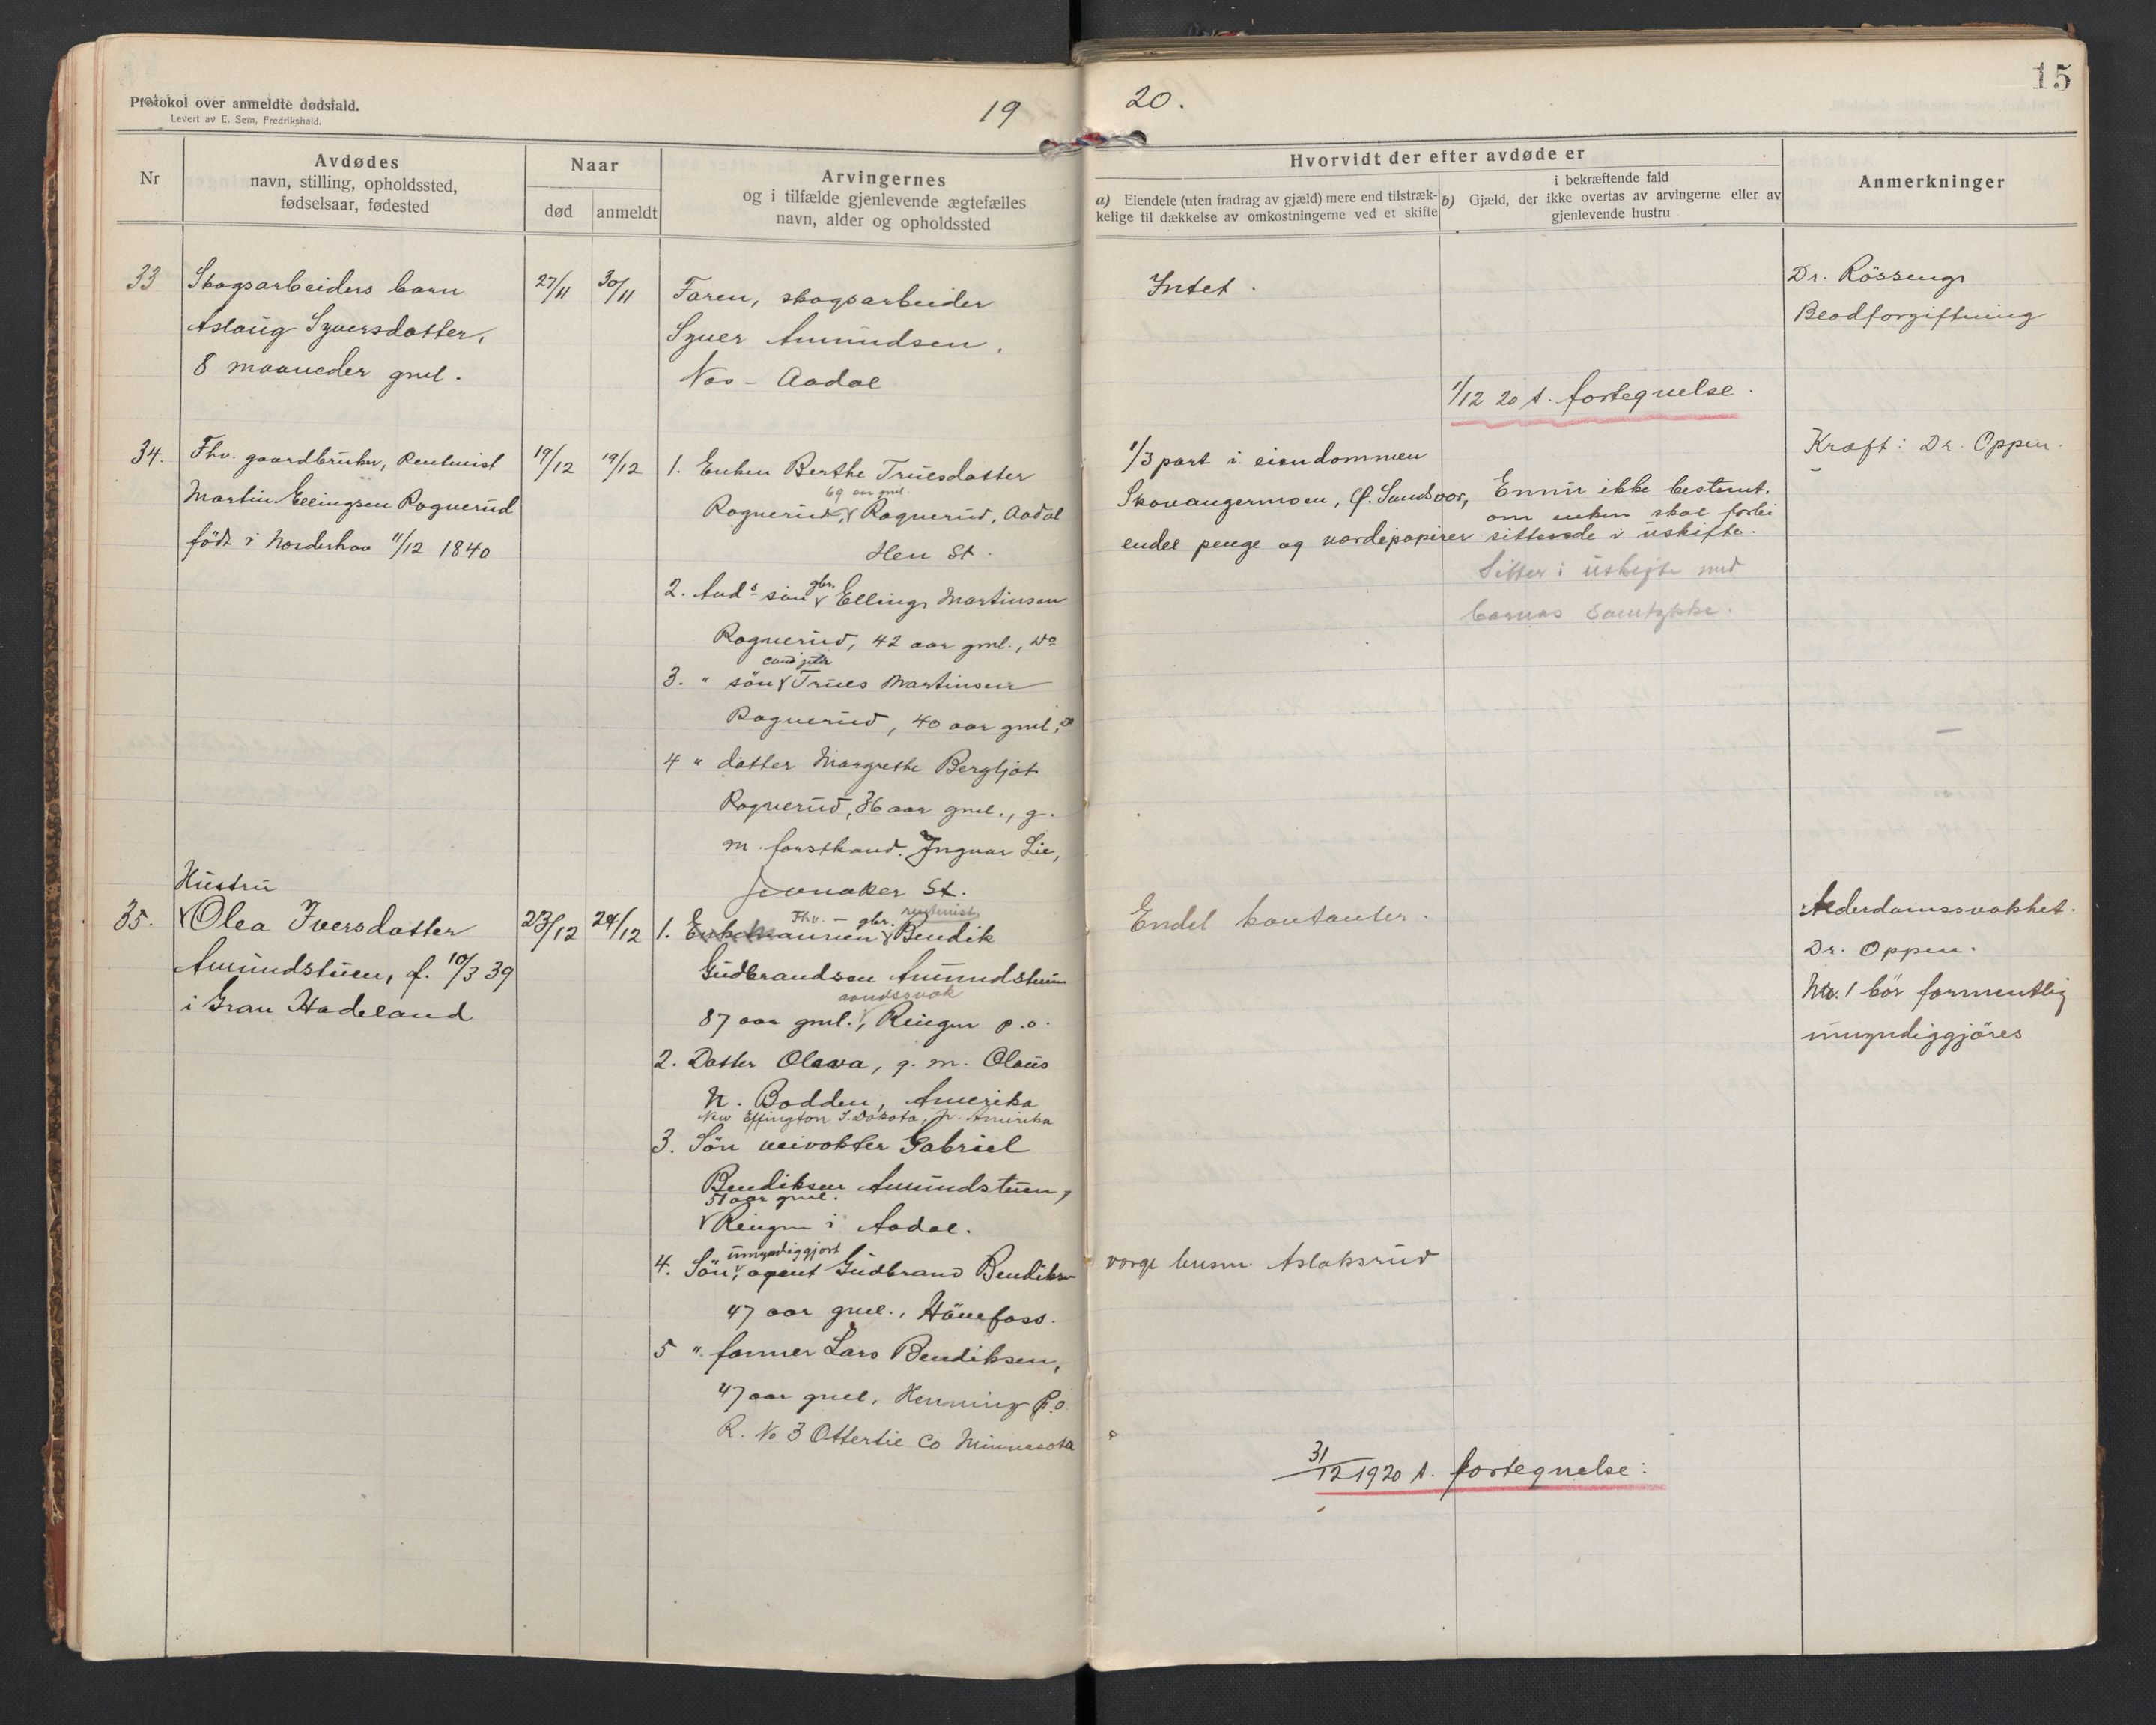 Protokol over anmeldte dødsfald.
Levert av E. Sem, Fredrikshald.
19
20.
15
Nr
Avdødes
navn, stilling, opholdssted,
fødselsaar, fødested
Naar
død
anmeldt
Arvingernes
og i tilfælde gjenlevende ægtefælles
navn, alder og opholdssted
Hvorvidt der efter avdøde er
a) Eiendele (uten fradrag av gjæld) mere end tilstræk-
kelige til dækkelse av omkostningerne ved et skifte
i bekræftende fald
b) Gjæld, der ikke overtas av arvingerne eller av
gjenlevende hustru
Anmerkninger
33
Skogsarbeiders barn
Aslaug Syversdatter,
8 maaneder gml.
27/11
30/11
Faren, skogsarbeider
Syver Amundsen,
Næs - Aadal
Intet.
Dr. Rösseng
Blodforgiftning
1/12 20 t. fortegnelse.
34.
Fhv. gaardbruker, Rentenist
Martin Ellingsen Rognerud
födt i Norderhov 11/12 1840
19/12
19/12
1. Enken Berthe Truesdatter
69 aar gml.
Rognerud, Rognerud, Aadal
Hen St.
2. Avd s sön gbr. Elling Martinsen
Rognerud, 42 aar gml., Do
cand jur
3. " sön Trues Martinsen
Rognerud, 40 aar gml, Do
4 " datter Margrethe Bergljot
Rognerud, 36 aar gml., g.
m. forstkand. Ingvar Lie,
Jevnaker St.
1/3 part i eiendommen
Skovangermoen, P. Sandvor,
endel penge og værdipapirer
Ennu ikke bestemt,
om enken skal forbli
sittende i uskifte.
Sitter i uskifte med
barnas samtykke.
Kræft: Dr. Oppen.
35.
Hustru
Olea Iversdatter
Amundstuen, f. 10/3 39
i Gran Hadeland
23/12
24/12
Fhv. - gbr. rentenist
1. Enkemannen Bendik
Gudbrandsen Amundstuen
aandssvak
87 aar gml., Ringen p.o.
2. Datter Olava, g. m. Olaus
N. Bodden, Amerika
New Effington S. Dakota, N. Amerika
3. Sön veivokter Gabriel
Bendiksen Amundstuen,
51 aar gml.
Ringen i Aadal.
umyndiggjort
4. Sön, agent Gudbrand Bendiksen
47 aar gml., Hönefoss.
5 " farmer Lars Bendiksen,
47 aar gml, Henning P.o.
R. No 3 Ottertie Co Minnesota
Endel kontanter.
Alderdomssvakhet.
Dr. Oppen.
No. 1 bör formentlig
umyndiggjöres
værge lensm. Aslaksrud
31/12 1920 t. fortegnelse: